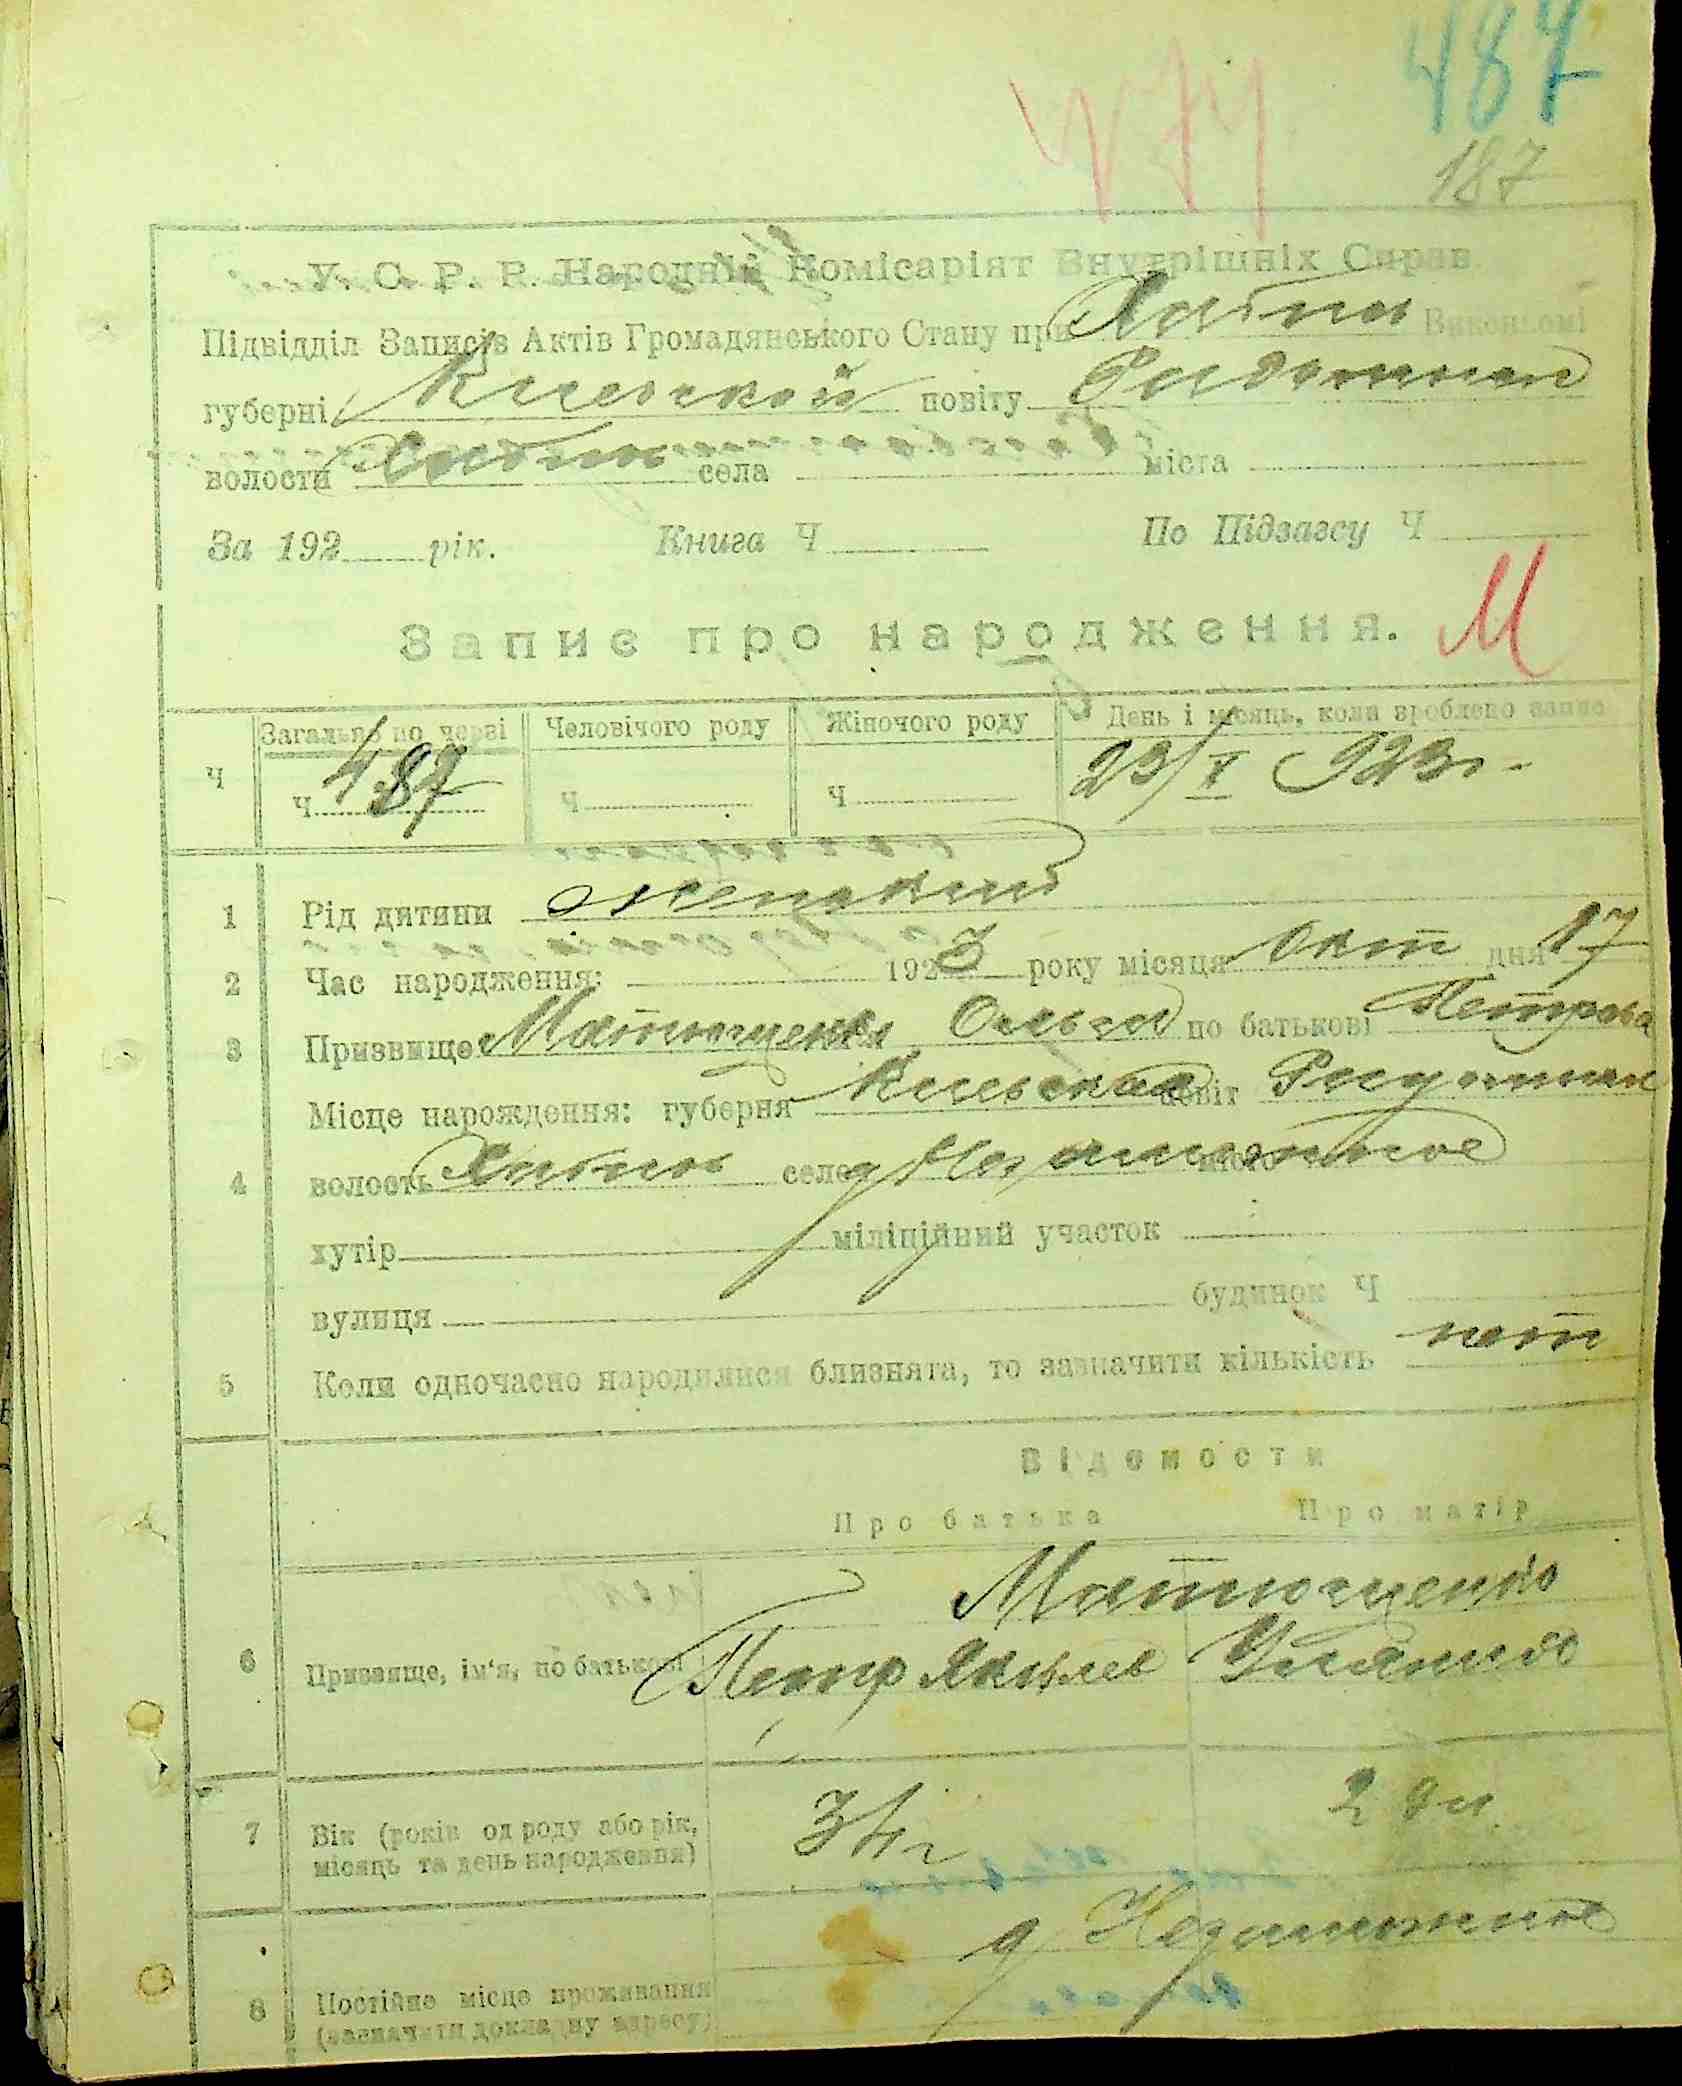 487
474
187
У. С. Р. Р. Народній Комісаріят Внутрішніх Справ
Підвідділ Записів Актів Громадянського Стану при Хабно Виконкомі
губерні Киевской повіту
волости Хабно села міста
За 192 рік. Книга Ч По Підзагсу Ч
Запис про народження. М
Загально по черзі Человічого роду Жіночого роду День і місяць, коли зроблено запис
Ч Ч 487 Ч Ч 23/X 923 г.
1 Рід дитини женский
2 Час народження: 1923 року місяця Окт дня 17
3 Призвище Матющенко Ольга по батькові Петрова
Місце народження: губерня Киевская повіт
4 волость Хабно село д. Незаможное
хутір міліційний участок
вулиця будинок Ч
5 Коли одночасно народилися близнята, то зазначити кількість нет
Відомости
Про батька Про матір
Матющенко
6 Призвище, ім'я, по батькові Петр Яковлев Ульяна
7 Вік (років од роду або рік,
місяць та день народження)
д. Незаможное
8 Постійне місце проживання
(зазначити докладну адресу)